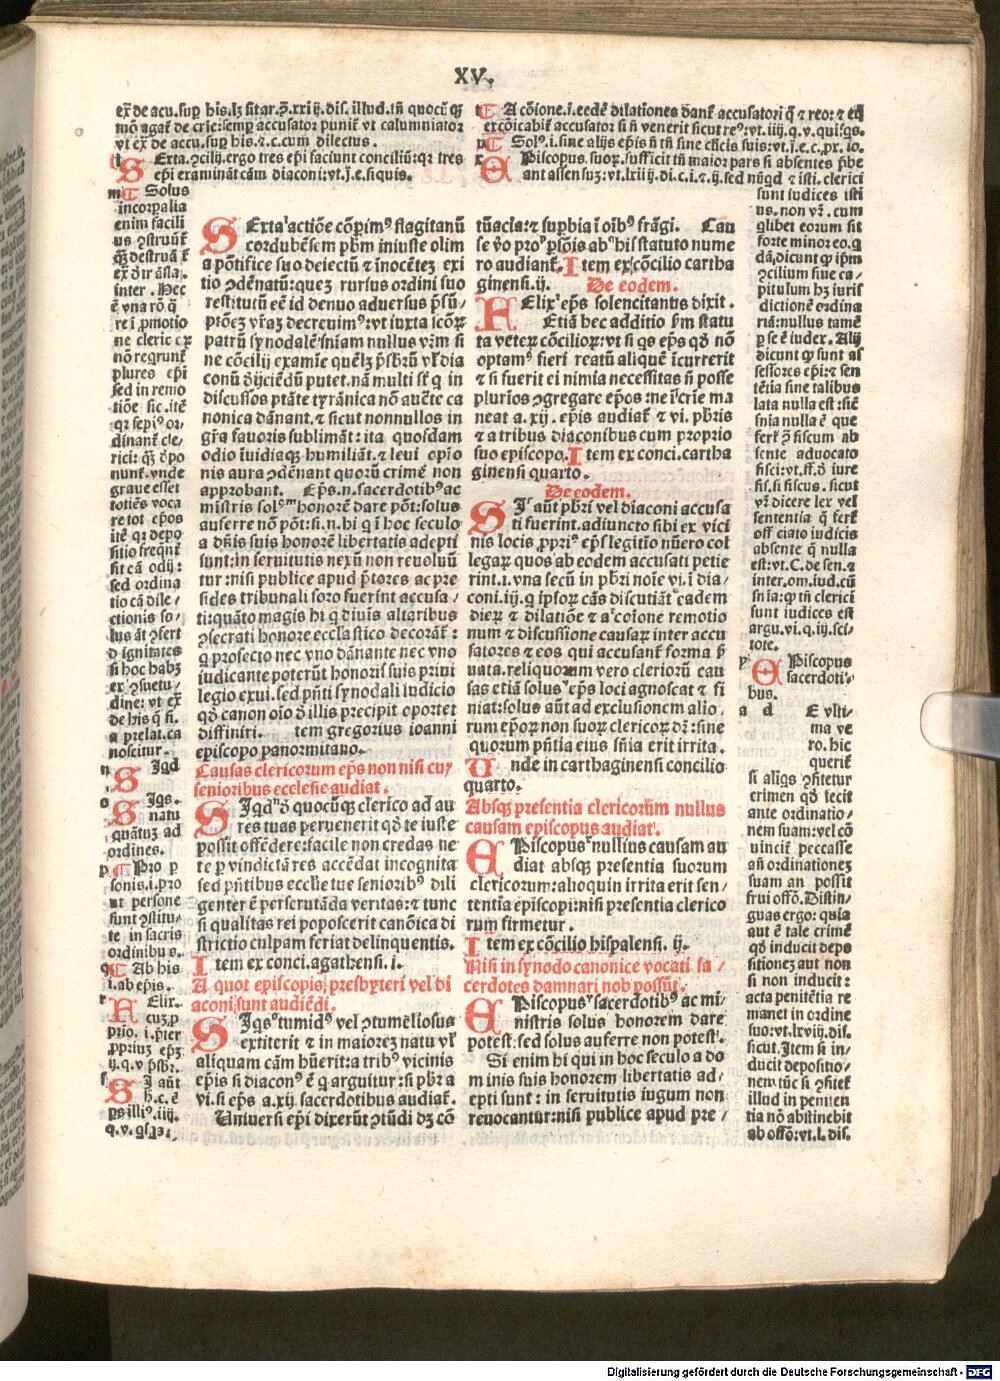 XV.
ex̄ de acu.sup his.lꝫ sitar.ꝯ.xxiij.dis.illud.tn̄ quocūqꝫ
mō agat̄ de cric:semꝑ accusator punit̄ vt calumniator
vt ex de accu.sup his.⁊.c.cum dilectus.
Exta.ꝯcilij.ergo tres ep̄i faciunt conciliū:qꝛ tres
ep̄i examināt cām diaconi:vt.j̄.e.siquis.
t A cōione.i.eedē dilationes dant̄ accusatori q̄ ⁊ reo:⁊
excōicabit̄ accusator si n̄ venerit sicut reꝰ:vt.iiij.q.v.quisqs.
u Solꝰ.i.sine alijs ep̄is n̄ tn̄ sine cl̄icis suis:vt.j̄.e.c.pr̄.io.
x Episcopus.suoꝝ.sufficit tn̄ maior pars si absentes p̄be
ant assensuꝫ:vt.lxiiij.di.c.i.⁊.ij.sed nūqd ⁊ isti.clerici
m Solus
incorpalia
enim facili
us ꝯstruūt̄
qꝫ destruā t̄
ex d̄ trāsla.
inter. Nec
ē vna rō q̄
re i ꝓmotio
ne cleric oꝝ
nō regrunt̄
plures ep̄i
sed in remo
tiōe sic.itē
qꝛ sepiꝰ or⸗
dinant̄ cle⸗
rici: qꝫ d̄po
nunt̄.vnde
graue esset
totiēs voca
re tot ep̄os
itē qꝛ depo
sitio frequēt̄
fit cā odij:
sed ordina
tio cā dile⸗
ctionis so⸗
lus āt ꝯsert
d ignitates
si hoc habꝫ
ex ꝯsuetu⸗
dine: vt ex̄
de his q̄ fi.
a prelat.ca
noscitur.
n Siqd
o Siqs.
natu
quātuꝫ ad
ordines.
p Pro p
sonis.i.pro
ut persone
sunt ꝯstitu⸗
te in sacris
ordinibus.
q Ab his
i.ab ep̄is.
r Felix.
cuꝫ.ꝓ
prio. i.p̄ter
ꝓpriuꝫ ep̄ꝫ
ij.q.v p̄sbr̄.
s Si aūt
h̄.c.ē
ps illiꝰ.iiij.
q.v.qsꝗꝫ:.
SExtaˡ actiōe cōp̄imꝰ flagitanū
cordubēsem pb̄m iniuste olim
a pōtifice suo deiectū ⁊ inocēteꝫ exi
tio ꝯdēnatū:queꝫ rursus ordini suo
restitutū eē id denuo aduersus p̄sū⸗
ptōeꝫ vr̄aꝫ decreuimꝰ:vt iuxta scōꝝ
patrū synodalē sniam nullus vr̄m si
ne cōcilij examīe quēlꝫ p̄sbr̄ū vl̓ dia
conū d̄ijciēdū putet.nā multi sūt q̄ in
discussos ptāte tyrānica nō auēte ca
nonica dānant.⁊ sicut nonnullos in
gr̄a fauoris sublimāt: ita quosdam
odio iuidiaqꝫ humiliāt.⁊ leui opīo
nis aura ꝯdēnant quorū crimē non
approbant. Ep̄s.n.sacerdotibꝰ ac
mīstris solꝰᵐ honorē dare pōt:solus
auferre nō pōt:si.n.hi q̄ ī hoc seculo
a dn̄is suis honorē libertatis adepti
sunt:in seruitutis nexū non reuoluū
tur:nisi publice apud p̄tores ac pre
sides tribunali foro fuerint accusa⸗
ti:quāto magis hi q̄ diuis altaribus
ꝯsecrati honore ecclastico decorāt̄:
q̄ profecto nec vno dānante nec vno
iudicante poterūt honoris suis priui
legio exui.sed pn̄ti synodali iudicio
qd̄ canon oio d̄ illis precipit oportet
diffiniri. tem gregorius ioanni
episcopo panormitano.
Causas clericorum ep̄s non nisi cuꝫ
senioribus ecclesie audiat.
SIqdⁿ d̄ quocūqꝫ clerico ad au
res tuas peruenerit qd̄ te iuste
possit offēdere:facile non credas ne
te p vindictā res accēdat incognita
sed pn̄tibus ecclie tue senioribꝰ dili
genter ē perscrutāda veritas:⁊ tunc
si qualitas rei poposcerit canōica di
strictio culpam feriat delinquentis.
Item ex conci.agathensi.i.
A quot episcopis presbyteri vel di
aconi sunt audiēdi.
SIqsᵒ tumidꝰ vel ꝯtumeliosus
extiterit ⁊ in maioreꝫ natu vl̓
aliquam cām hūerit:a tribꝰ vicinis
ep̄is si diaconꝰ ē q̄ arguitur:si pb̄r a
vi.si ep̄s a.xij.sacerdotibus audiat̄.
Uniuersi ep̄i dixerūt ꝯtūdi dꝫ cō
tūacia:⁊ supbia i oibꝰ frāgi. Cau
se v̄o proᵖ psōis abᑫ his statuto nume
ro audiant̄. Item ex cōcilio cartha
ginensi.ij. De eodem.
FElixʳ ep̄s solencitantis dixit.
Etiā hec additio s̄m statu
ta veteꝝ cōcilioꝝ:vt si qs ep̄s qd̄ nō
optamꝰ fieri reatū aliquē icurrerit
⁊ si fuerit ei nimia necessitas n̄ posse
plurios ꝯgregare ep̄os:ne i crie ma
neat a.xij. ep̄is audiat̄ ⁊ vi. pb̄ris
⁊ a tribus diaconibus cum proprio
suo episcopo. Item ex conci.cartha
ginensi quarto.
De eodem.
SIˢ aūt pb̄ri vel diaconi accusa
ti fuerint.adiuncto sibi ex vici
nis locis ꝓpriꝰ ep̄s legitīo nūero col
legaꝝ quos ab eodem accusati petie
rint.i.vna secū in pb̄ri noīe vi.i dia⸗
coni.iij.q̄ ipsoꝝ cās discutiāt:eadem
dieꝝ ⁊ dilatiōe ⁊ aᵗ cōione remotio
num ⁊ discussione causaꝝ inter accu
satores ⁊ eos qui accusant̄ forma p̄
uata.reliquorum vero clericoꝝ cau
sas etiā solusᵘ ep̄s loci agnoscat ⁊ fi
niat:solus aūt ad exclusionem alio⸗
rum ep̄oꝝ non suoꝝ clericoꝝ dr̄:sine
quorum pn̄tia eius sn̄ia erit irrita.
Unde in carthaginensi concilio
quarto.
Absqꝫ presentia clericorum nullus
causam episcopus audiat.
EPiscopusˣ nullius causam au
diat absqꝫ presentia suorum
clericorum:alioquin irrita erit sen⸗
tentia episcopi:nisi presentia clerico
rum firmetur.
Item ex cōcilio hispalensi. ij.
Nisi in synodo canonice vocati sa⸗
cerdotes damnari non possūt.
EPiscopusʸ sacerdotibꝰ ac mi⸗
nistris solus honorem dare
potest:sed solus auferre non potestᶻ.
Si enim hi qui in hoc seculo a do
minis suis honorem libertatis ad⸗
epti sunt: in seruitutis iugum non
reuocantur:nisi publice apud pre⸗
sunt iudices isti
us.non vr̄. cum
quilibet eorum sit
forte minor eo.q
dā.dicunt q̄ ip̄m
ꝯcilium siue ca⸗
pitulum hꝫ iuris
dictionē ordina
riā:nullus tamē
p se ē iudex. Alij
dicunt q̄ sunt as
sessores ep̄i:⁊ sen
tētia sine talibus
lata nulla est:sic̄
snia nulla ē que
fert̄ ꝯ fiscum ab
sente aduocato
fisci:vt.ff.d̄ iure
fis.si fiscus. sicut
vr̄ dicere lex vel
sententia q̄ fert̄
officiato iudicis
absente q̄ nulla
est:vt.C.de sen.⁊
inter.om.iud.cū
sn̄ia:q̄ tn̄ clerici
sunt iudices est
argu.vi.q.iij.sci
tote.
y Episcopus
sacerdoti⸗
bus.
a d E vlti⸗
ma ve
ro. hic
querit̄
si aliqs ꝯfitetur
crimen qd̄ fecit
ante ordinatio⸗
nem suam:vel cō
uincit̄ peccasse
an̄ ordinationeꝫ
suam an possit
frui offō.Distin⸗
guas ergo: quia
aut ē tale crimē
qd̄ inducit depo
sitioneꝫ aut non
si non inducit:
acta penitētia re
manet in ordine
suo:vt.lxviij.dis.
sicut.Item si in⸗
ducit depositio⸗
nem tūc si ꝯfitet̄
illud in peniten
tia nō abstinebit
ab offō:vt.l.dis.
Digitalisierung gefördert durch die Deutsche Forschungsgemeinschaft - DFG